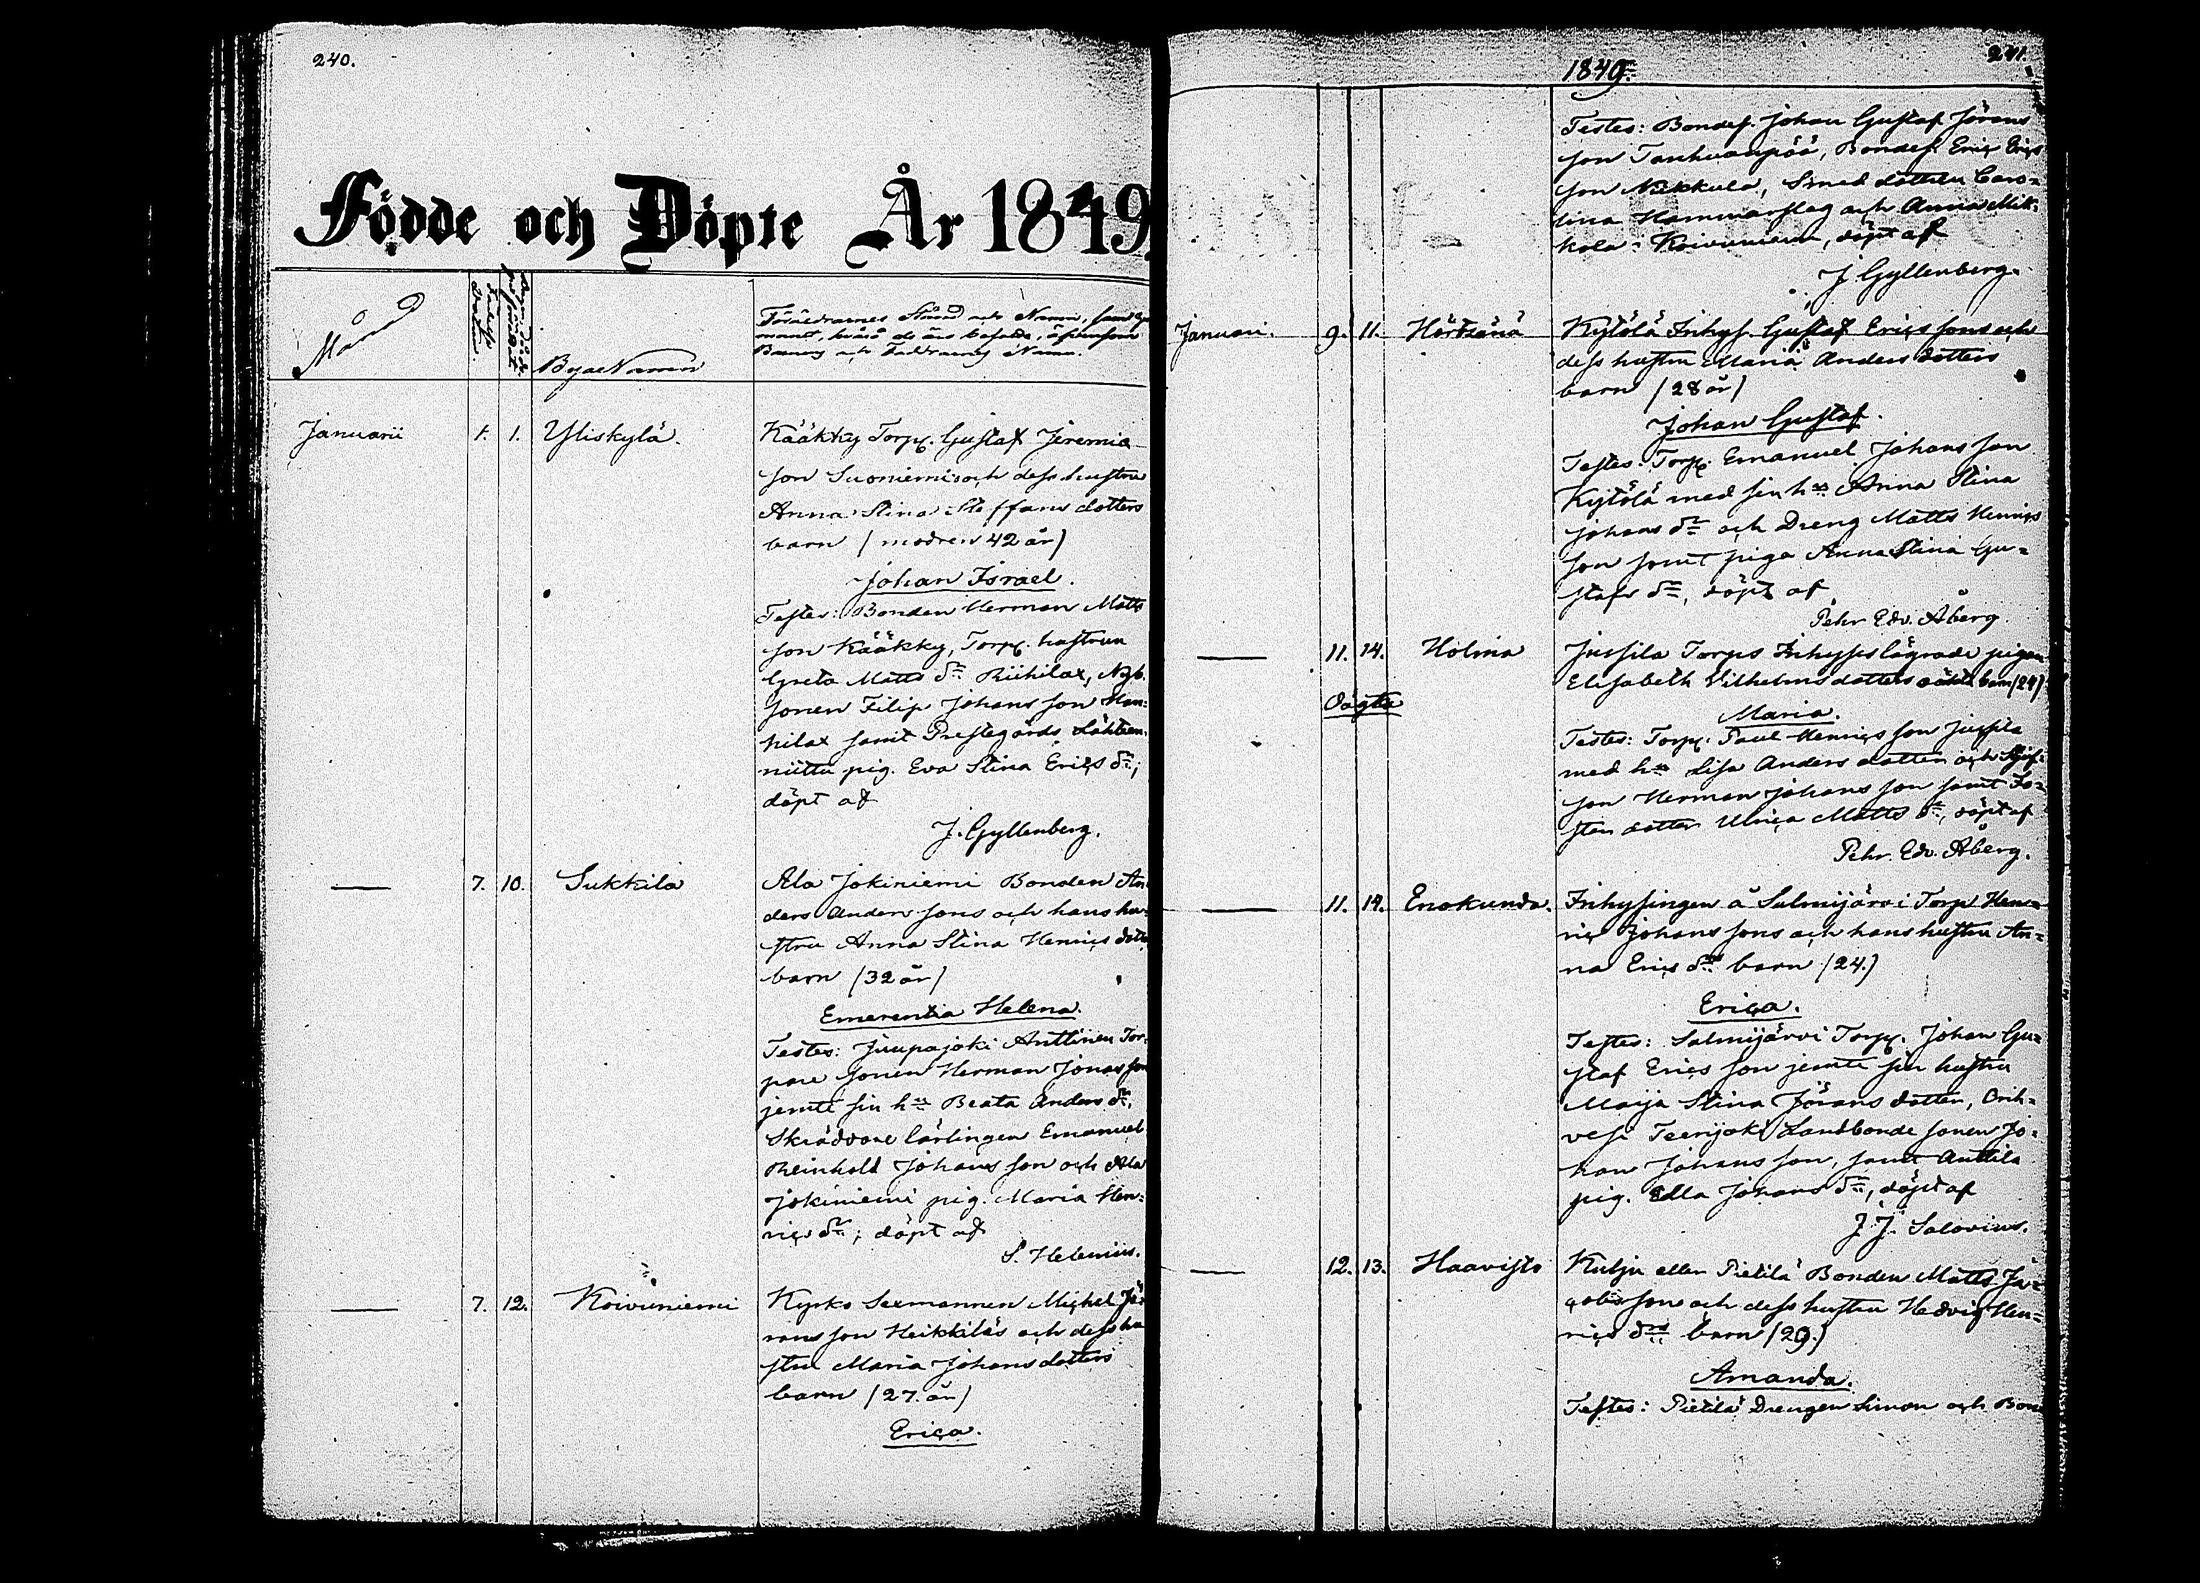 240.
Födde och Döpte År 1849.
Månad
Bya Namn
Föräldrarnes Stånd och Namn, samt
Barnens och Faddrarnes Namn.
Januarii 1. 1. Yliskylä.
Kääkky Torp. Gustaf Jeremia
son Suoniemi och dess hustru
Anna Stina Steffans dotters
barn (modren 42 år)
Johan Israel.
Testes: Bonden Herman Matts
son Kääkky, Torp. hustrun
Greta Matts dr Riihilax, Nyb.
sonen Filip Johans son Man-
nilax samt Prestegårds Lähteen-
niittu pig. Eva Stina Erics dr;
döpt af
J. Gyllenberg.
— 7. 10. Sukkila
Ala Jokiniemi Bonden An
ders Anders sons och hans hu-
stru Anna Stina Henrics dotters
barn (32 år)
Emerentia Helena.
Testes: Juupajoki Anttinen Tor-
pare sonen Herman Jonas son
jemte sin hu Beata Anders dr,
Skräddare lärlingen Emanuel
Reinhold Johans son och Ala
Jokiniemi pig. Maria Hen-
rics dr; döpt af
S. Helenius.
— 7. 12. Koivuniemi
Kyrko Sexmannen Michel Jö-
rans son Heikkiläs och dess hu
stru Maria Johans dotters
barn (27. år)
Erica.
1849.
241.
Testes: Bondes. Johan Gustaf Jörans
son Tanhuanpää, Bondes. Eric Erics
son Nikkula, Smed dottern Caro-
lina Hammarslag och Anna Mik-
kola i Koivuniemi, döpt af
J. Gyllenberg.
Januari. 9. 11. Hörtsänä
Kytölä Inhys. Gustaf Erics sons och
dess hustru Maria Anders dotters
barn (28 år)
Johan Gustaf.
Testes: Torp. Emanuel Johans son
Kytölä med sin hu Anna Stina
Johans dr och Dreng Matts Henrics
son samt piga Anna Stina Gu-
stafs dr, döpt af
Pehr Edv. Åberg.
— 11. 14. Holma
Jussila Torps Inhyses lägrade pigan
Elisabeth Vilhelms dotters oäkta barn (24)
Oägta
Maria.
Testes: Torp. Paul Henrics son Jussila
med hu Lisa Anders dotter och
son Herman Johans son samt Fo-
ster dotter Ulrica Matts dr, döpt af
Pehr. Edv. Åberg.
— 11. 14. Enokunda.
Inhysingen å Salmijärvi Torp Hen-
ric Johans sons och hans hustru An-
na Erics drs barn (24.)
Erica.
Testes: Salmijärvi Torp. Johan Gu-
staf Erics son jemte sin hustru
Maija Stina Jörans dotter, Orih-
vesi Teerijoki Landbonde sonen Jo-
han Johans son, samt Anttila
pig. Edla Johans dr, döpt af
J. J. Salovius.
— 12. 13. Haavisto
Kutju eller Pietilä Bonden Matts Ja-
cobs sons och dess hustru Hedvig Hen-
rics drs barn (29.)
Amanda.
Testes: Pietilä Drengen Simon och Bon